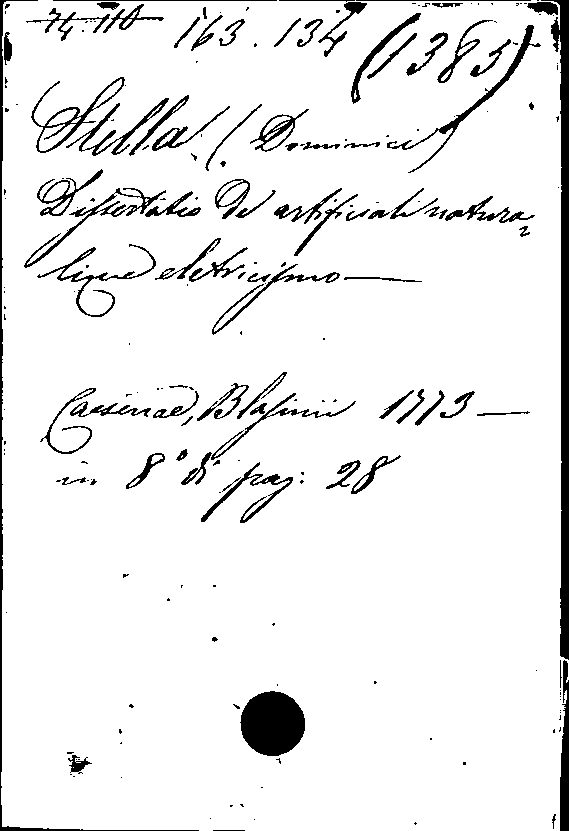 74.110 163.134 (1383)
Stella (Dominici)
Dissertatio de artificiali natura-
lique eletricismo
Caesenae, Blasinii 1773
in 8° di pag: 28